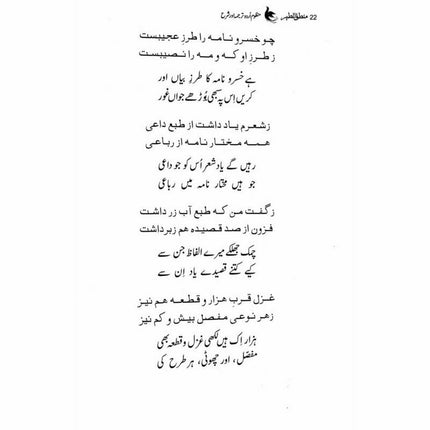 22 منطق الطیر منظوم اردو ترجمہ اور شرح
چو خسرو نامه را طرز عجیبست
ز طرز او که و مه را نصیبست
ہے خسرو نامہ کا طرزِ بیاں اور
کریں اِس پہ سبھی بُوڑھے جواں غور
ز شعرم یاد داشت از طبع داعی
همه مختار نامه از رباعی
رہیں گے یاد شعر اُس کو جو داعی
جو ہیں مختار نامہ میں رباعی
ز گفت من که طبع آب زر داشت
فزون از صد قصیده هم زبر داشت
چمک جھلکے میرے الفاظ جن سے
کیے کتنے قصیدے یاد اِن سے
غزل قرب هزار و قطعه هم نیز
ز هر نوعی مفصل بیش و کم نیز
ہزار اِک ہیں لکھی غزل و قطعہ بھی
مفصّل، اور چھوٹی، ہر طرح کی